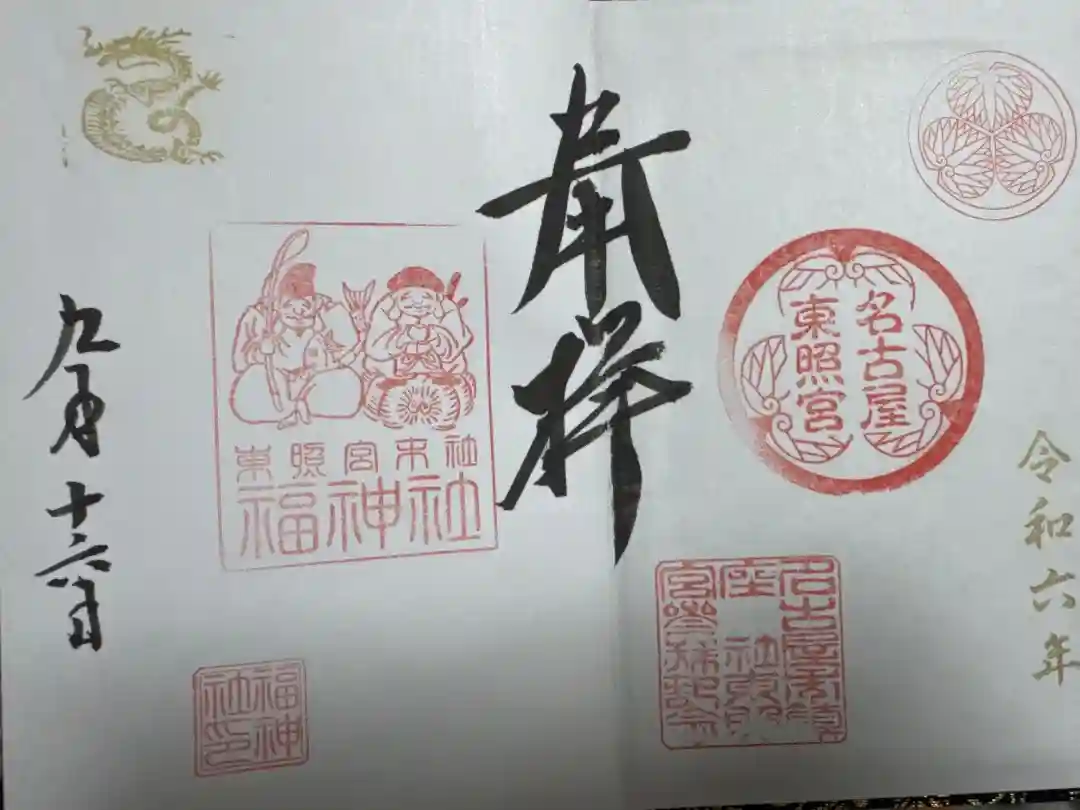 令和六年
名古屋
東照宮
宮参拝記念
奉拝
東照宮末社
福神社
福神
社印
九月十六日